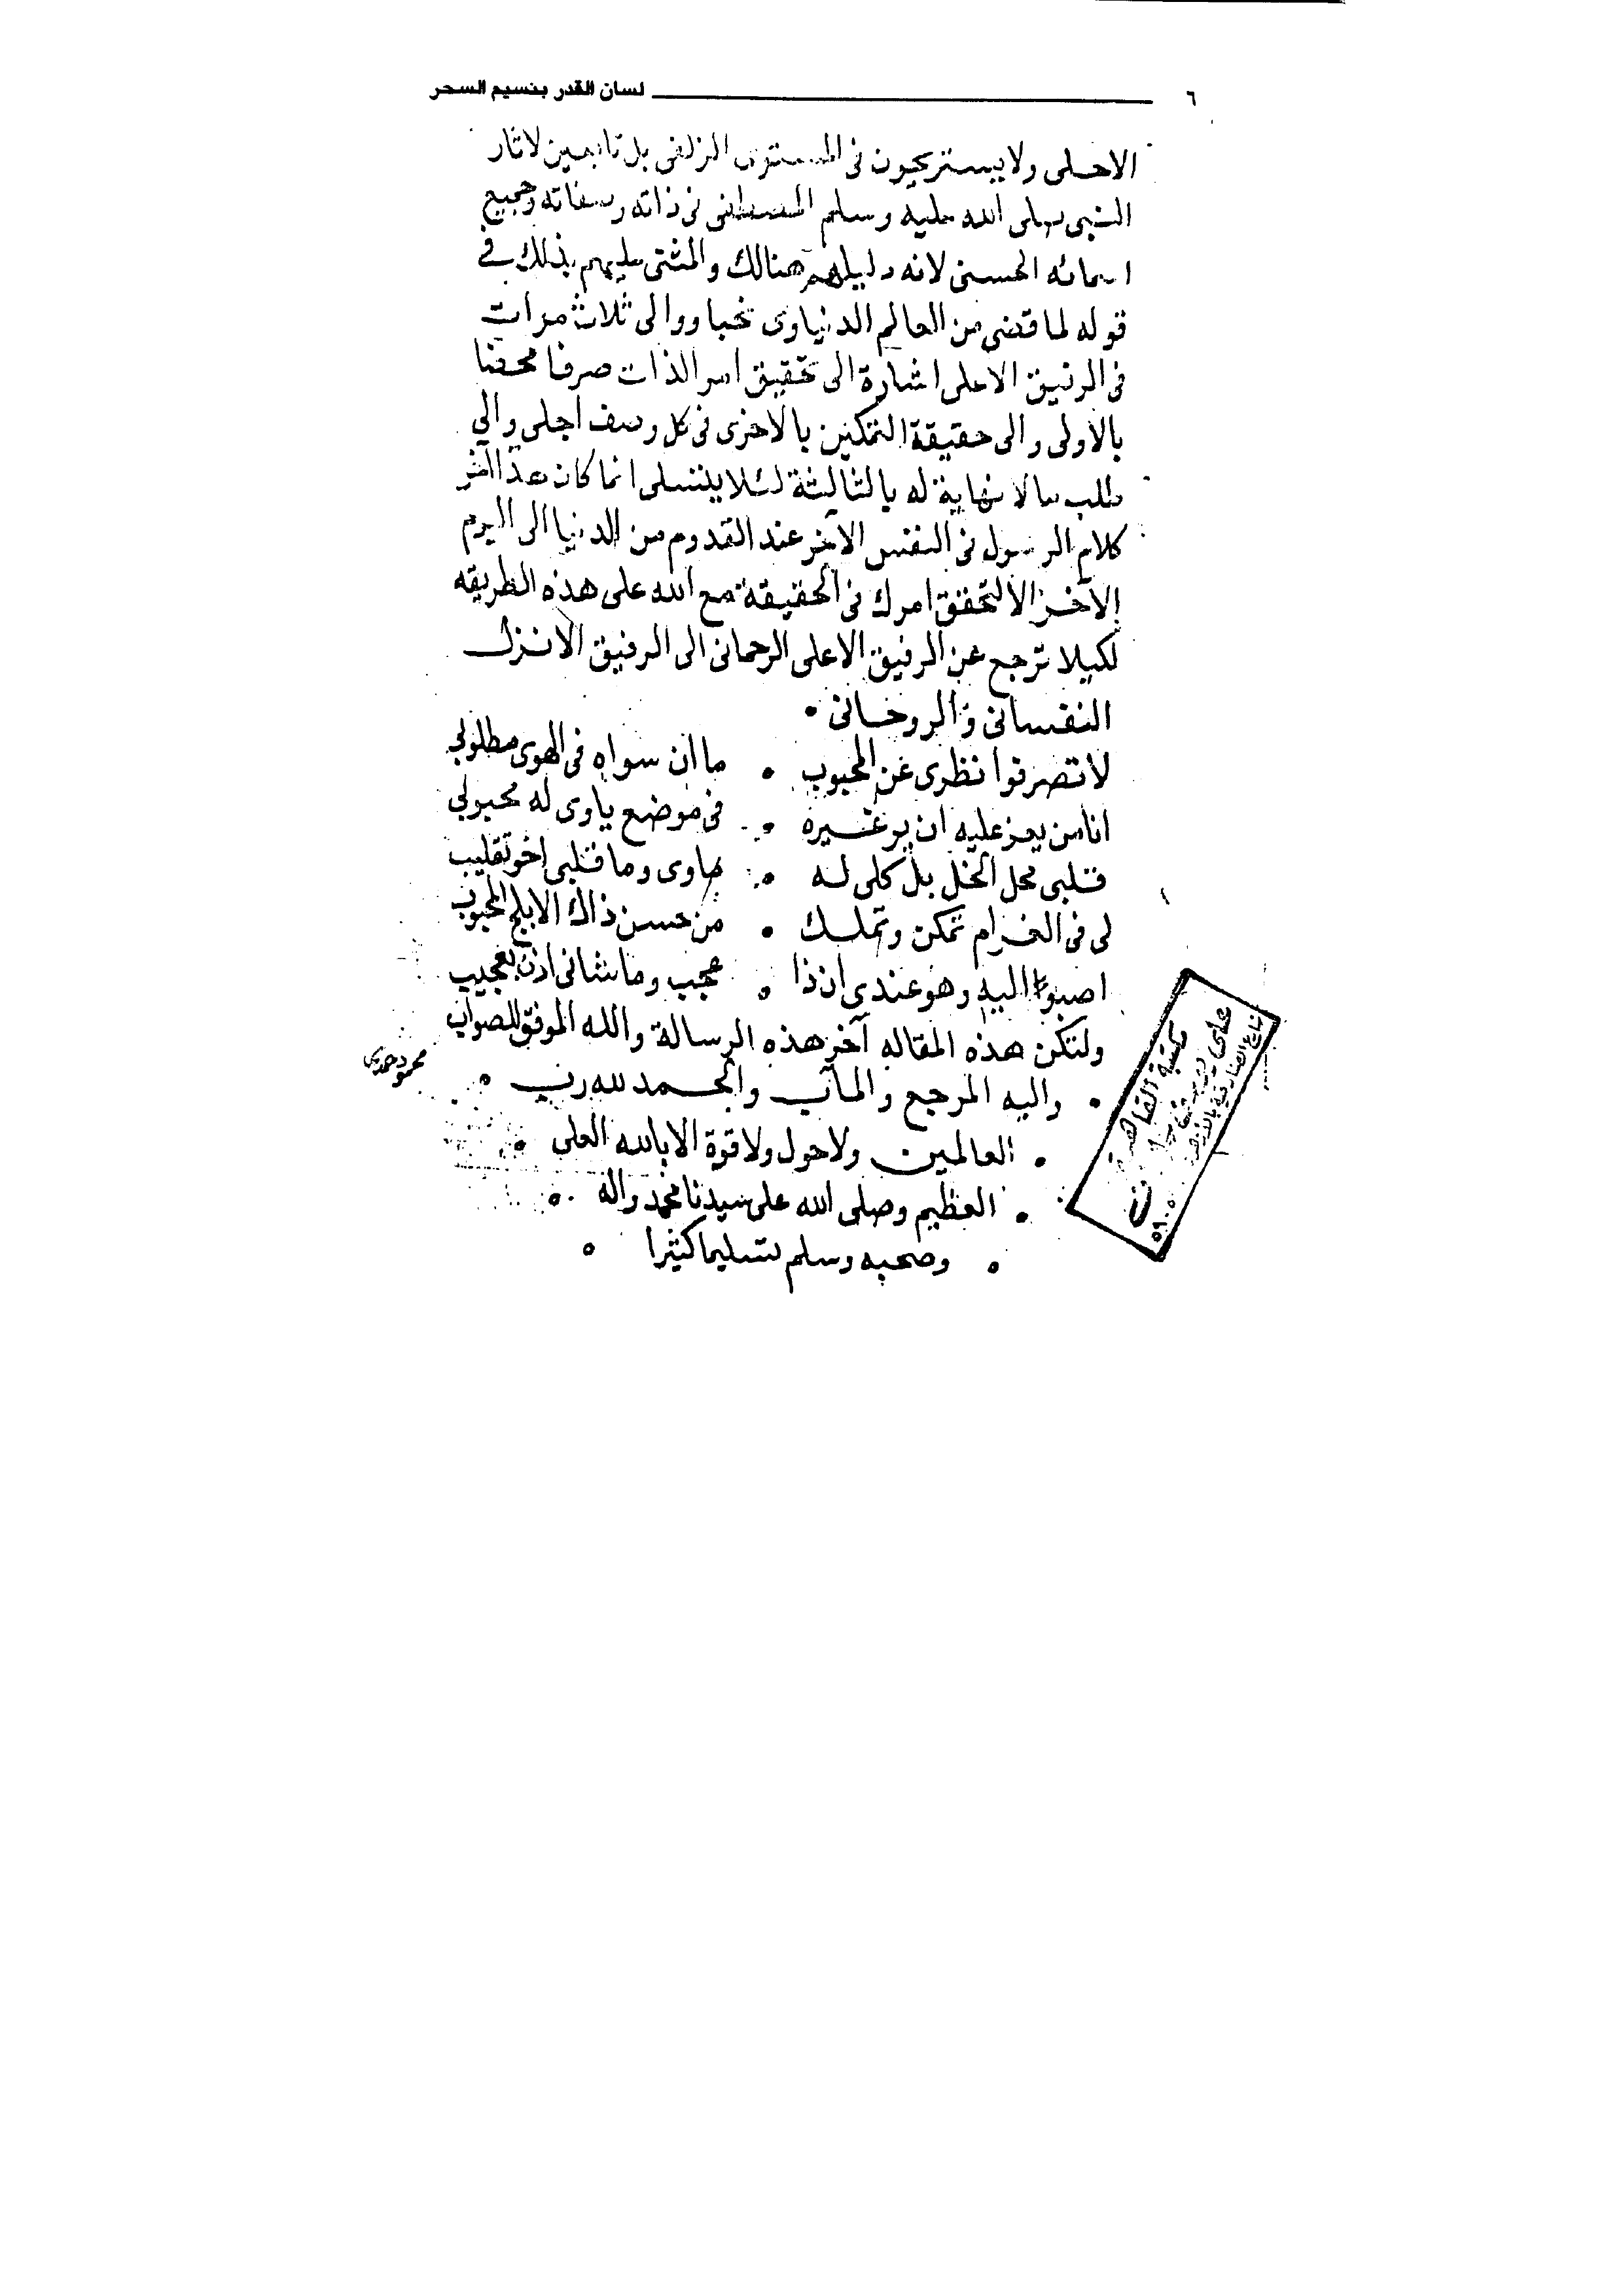 ٦ لسان القدر بنسيم السحر
الاحلى ولا يستريحيون فى المستوى الزلفى بل تابعين لاثار
النبى صلى الله عليه وسلم المصطفى فى ذاته وصفاته وجميع
اسمائه الحسنى لانه دليلهم هنالك والمثنى عليهم بذلك فى
قوله لما قضى من العالم الدنياوى نحبا ووالى ثلاث مرات
فى الرفيق الاعلى اشارة الى تحقيق امر الذات صرفا محضا
بالاولى والى حقيقة التمكين بالاخرى فى كل وصف اجلى والى
طلب مالا نهاية له بالثالثة لئلا يتسلى انما كان هذا آخر
كلام الرسول فى النفس الآخر عند القدوم من الدنيا الى اليوم
الآخر الا لتحقق امرك فى الحقيقة مع الله على هذه الطريقه
لكيلا ترجع عن الرفيق الاعلى الرحمانى الى الرفيق الانزل
النفسانى والروحانى ٠
لا تصرفوا نظرى عن المحبوب ٠ ما ان سواه فى الهوى مطلوبى
انا من يعز عليه ان ير غيره ٠ فى موضع ياوى له محبوبى
قلبى محل الخل بل كلى له ٠ ماوى وما قلبى اخو تقليب
لى فى الغرام تمكن وتملك ٠ من حسن ذاك الابلج المحبوب
اصبوا اليه وهو عندى ان ذا ٠ عجب وما شانى اذن بعجيب
ولتكن هذه المقاله آخر هذه الرسالة والله الموفق للصواب
٠ واليه المرجع والمآب والحمد لله رب ٠
٠ العالمين ولا حول ولا قوة الا بالله العلى ٠
٠ العظيم وصلى الله على سيدنا محمد واله ٠
٠ وصحبه وسلم تسليما كثيرا ٠
محمود حمدى
مكتبة القاهرة
على يوسف سليمان
شارع الصنادقية بالازهر